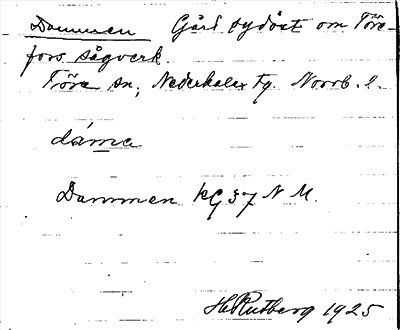 Dammen Gård sydöst om Töre-
fors sågverk.
Töre sn, Nederkalix tg. Norrb. l.
dáma
Dammen kG 37 N M.
H Rutberg 1925